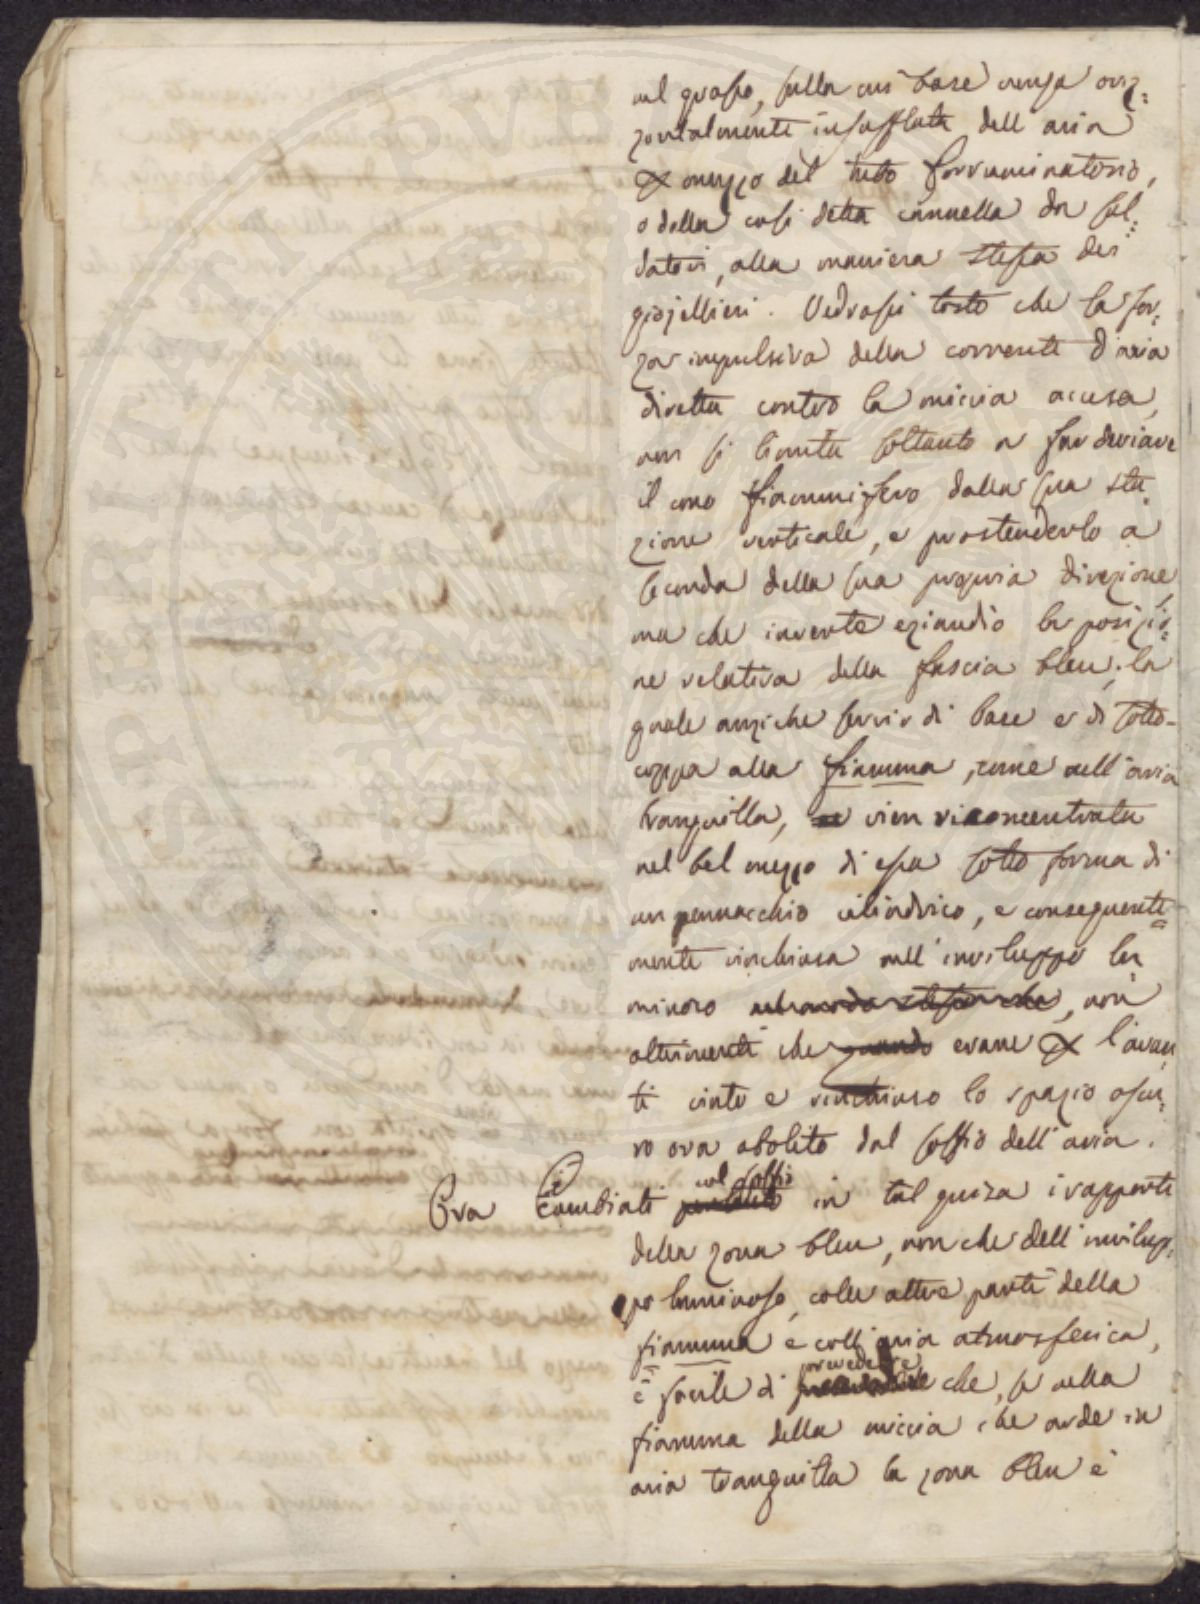 nel grasso, sulla cui base venga oriz=
zontalmente insufflata dell'aria
per mezzo del tubo ferruminatorio,
o della così detta cannella da sal=
datori, alla maniera stessa dei
giojellieri. Vedrassi tosto che la for=
za impulsiva della corrente d'aria
diretta contro la miccia accesa,
non si limita soltanto a far deviare
il cono fiammifero dalla sua sta=
zione verticale, e prostenderlo a
seconda della sua propria direzione,
ma che inverte eziandio la posizio=
ne relativa della fascia bleu; la
quale anziche servir di base e di sotto-
coppa alla fiamma, come nell'aria
tranquilla, vien riconcentrata
nel bel mezzo di essa sotto forma di
un pennacchio cilindrico, e conseguente=
mente rinchiusa nell'inviluppo lu=
minoso, non
altrimenti che quando erane per l'avan=
ti cinto e rinchiuso lo spazio oscu=
ro ora abolito dal soffio dell'aria.
Ora cambiati col soffio in tal guisa i rapporti
della zona bleu, non che dell'invilup=
po luminoso, colle altre parti della
fiamma e coll'aria atmosferica,
è facile di prevedere che, se nella
fiamma della miccia che arde in
aria tranquilla la zona bleu è